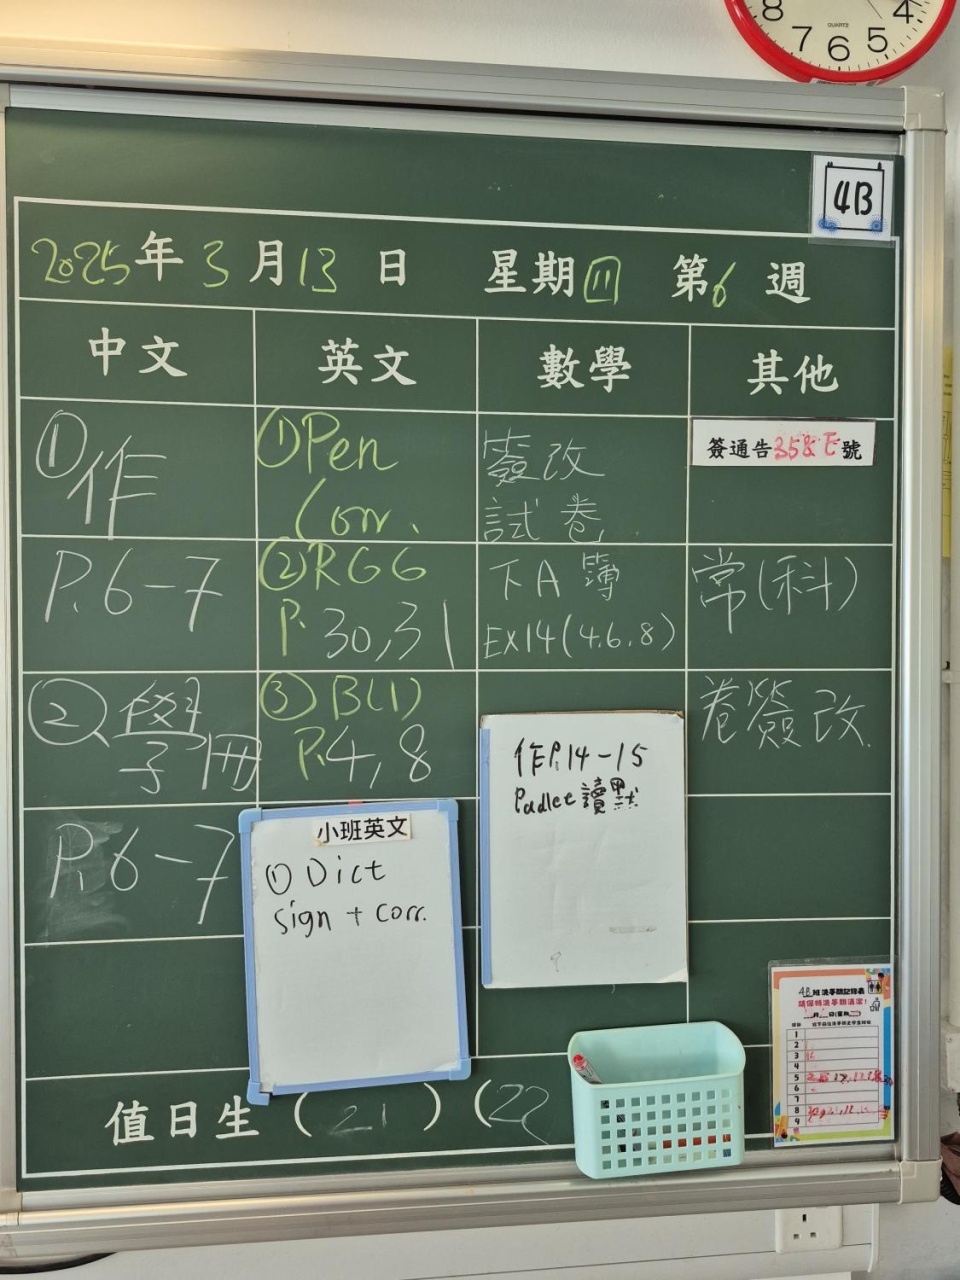 8 4
7 6 5
QUARTZ
4B
2025年3月13日 星期四 第6週
中文 英文 數學 其他
①作
P.6-7
②學冊
P.6-7
①Pen
Corr.
②RGG
P.30,31
③B(1)
P.4,8
小班英文
① Dict
sign + corr.
簽改
試卷
下A簿
EX14(4.6.8)
作P.14-15
Padlet讀默
簽通告358E號
常(科)
卷簽改.
4B班洗手間記錄表
請保持洗手間清潔!
1
2
3 16
4
5
6
7
8
9
值日生 (21) (22